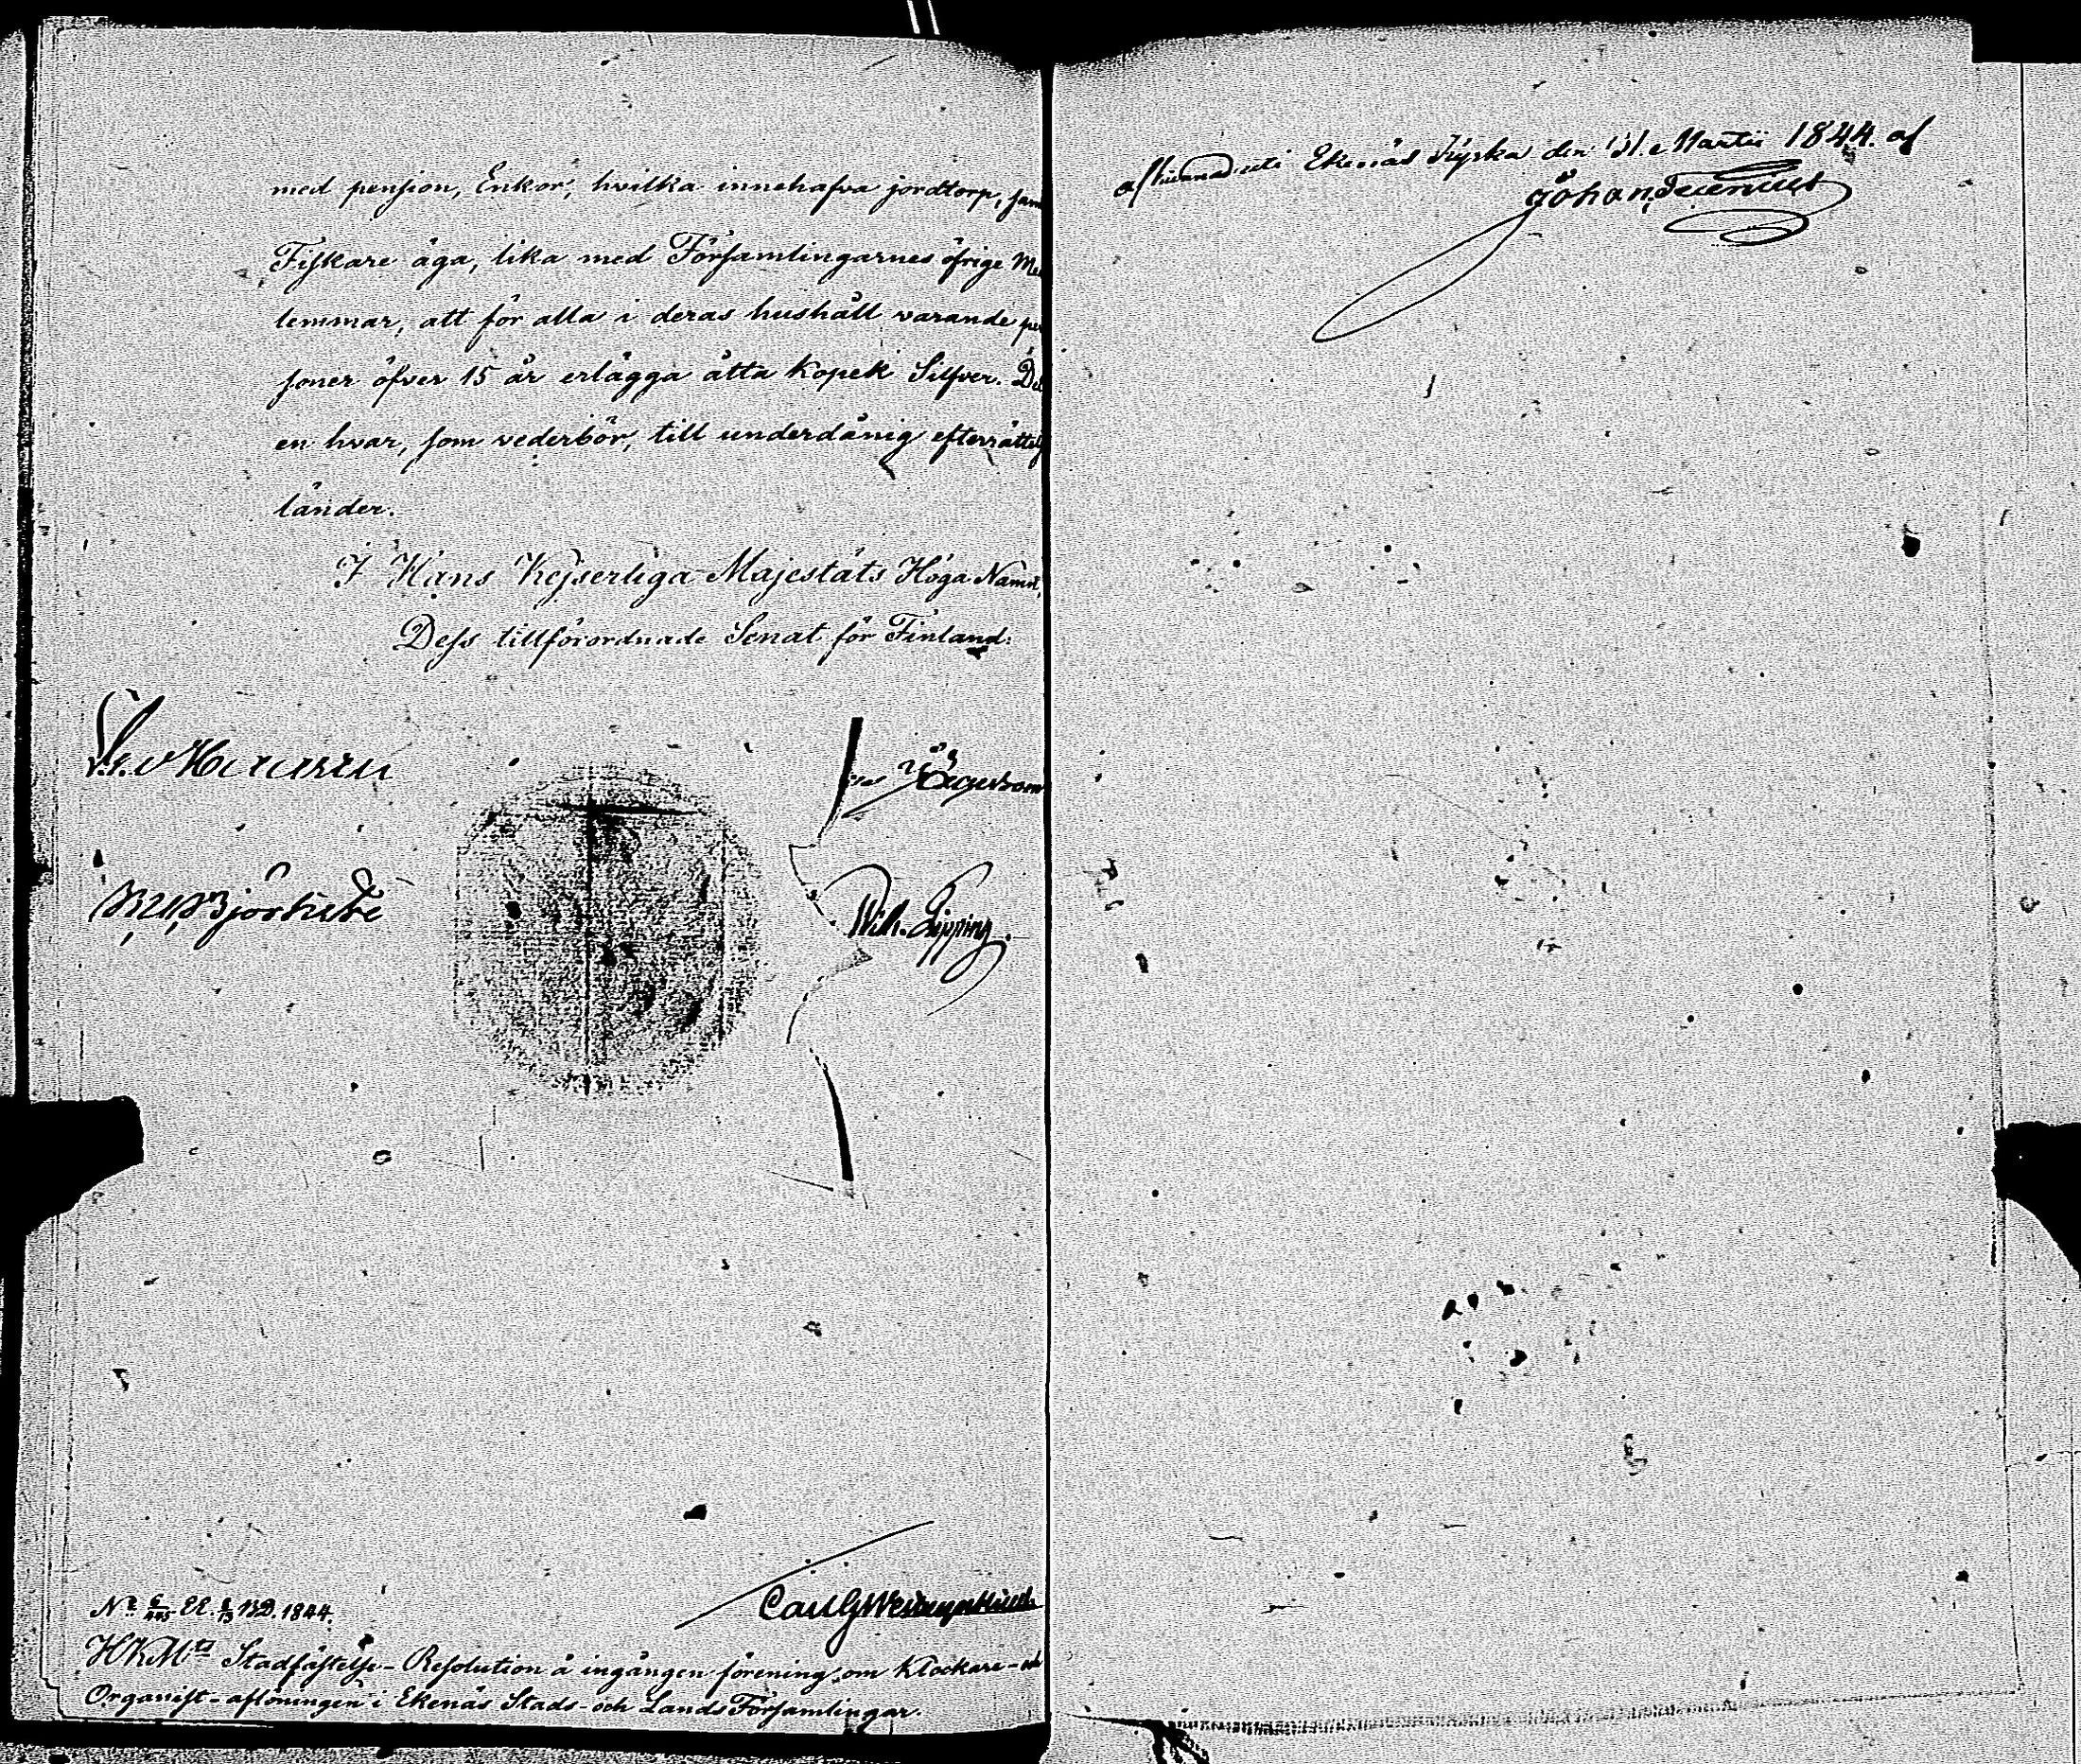 med pension, Enkor, hvilka innehafva jordtorp, sam
Fiskare äga, lika med Församlingarnes öfrige Me
lemmar, att för alla i deras hushåll varande per
soner öfver 15 år erlägga åtta Kopek Silfver. De
en hvar, som vederbör, till underdånig efterrättels
länder.
I Hans Kejserliga Majestäts Höga Namn,
Dess tillförordnade Senat för Finland:
Wilh. Zipping.
Carl G
No 1844.
HKMts Stadfästelse-Resolution å ingången förening om Klockare-och
Organist-aflöningen i Ekenäs Stads-och Lands Församlingar.
Ekenäs Kyrka den 31. Martii 1844. af
Johan